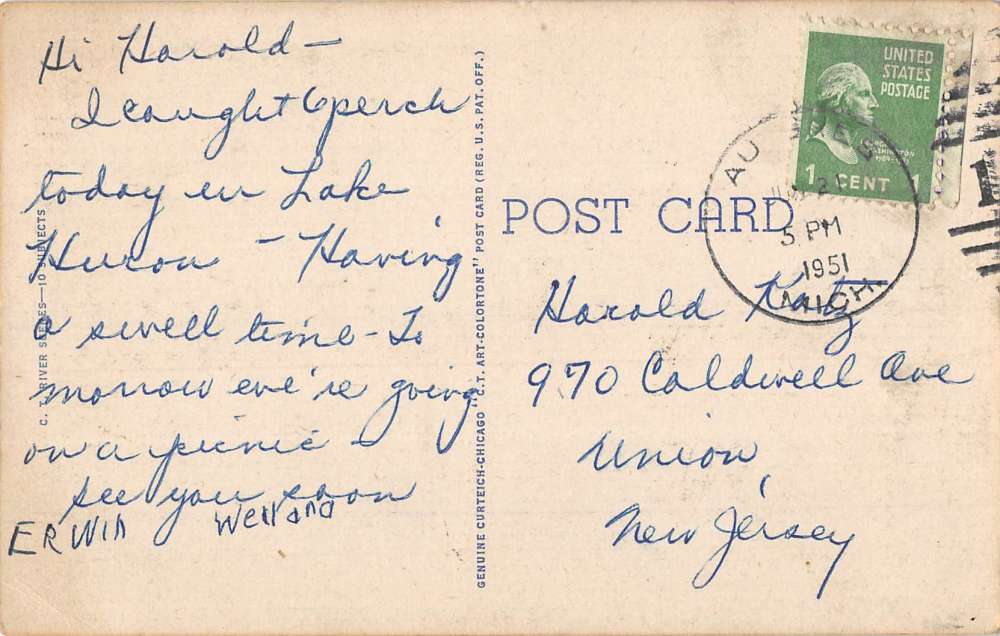 Hi Harold —
I caught 6 perch
today in Lake
Huron — Having
a swell time - To
morrow we're going
on a picnic —
see you soon
ERWIN Weiland
GENUINE CURTEICH-CHICAGO "C.T. ART-COLORTONE" POST CARD (REG. U.S. PAT. OFF.)
POST CARD
UNITED
STATES
POSTAGE
1 CENT 1
AU
5 PM
1951
MICH.
Harold Katz
970 Caldwell Ave
Union,
New Jersey